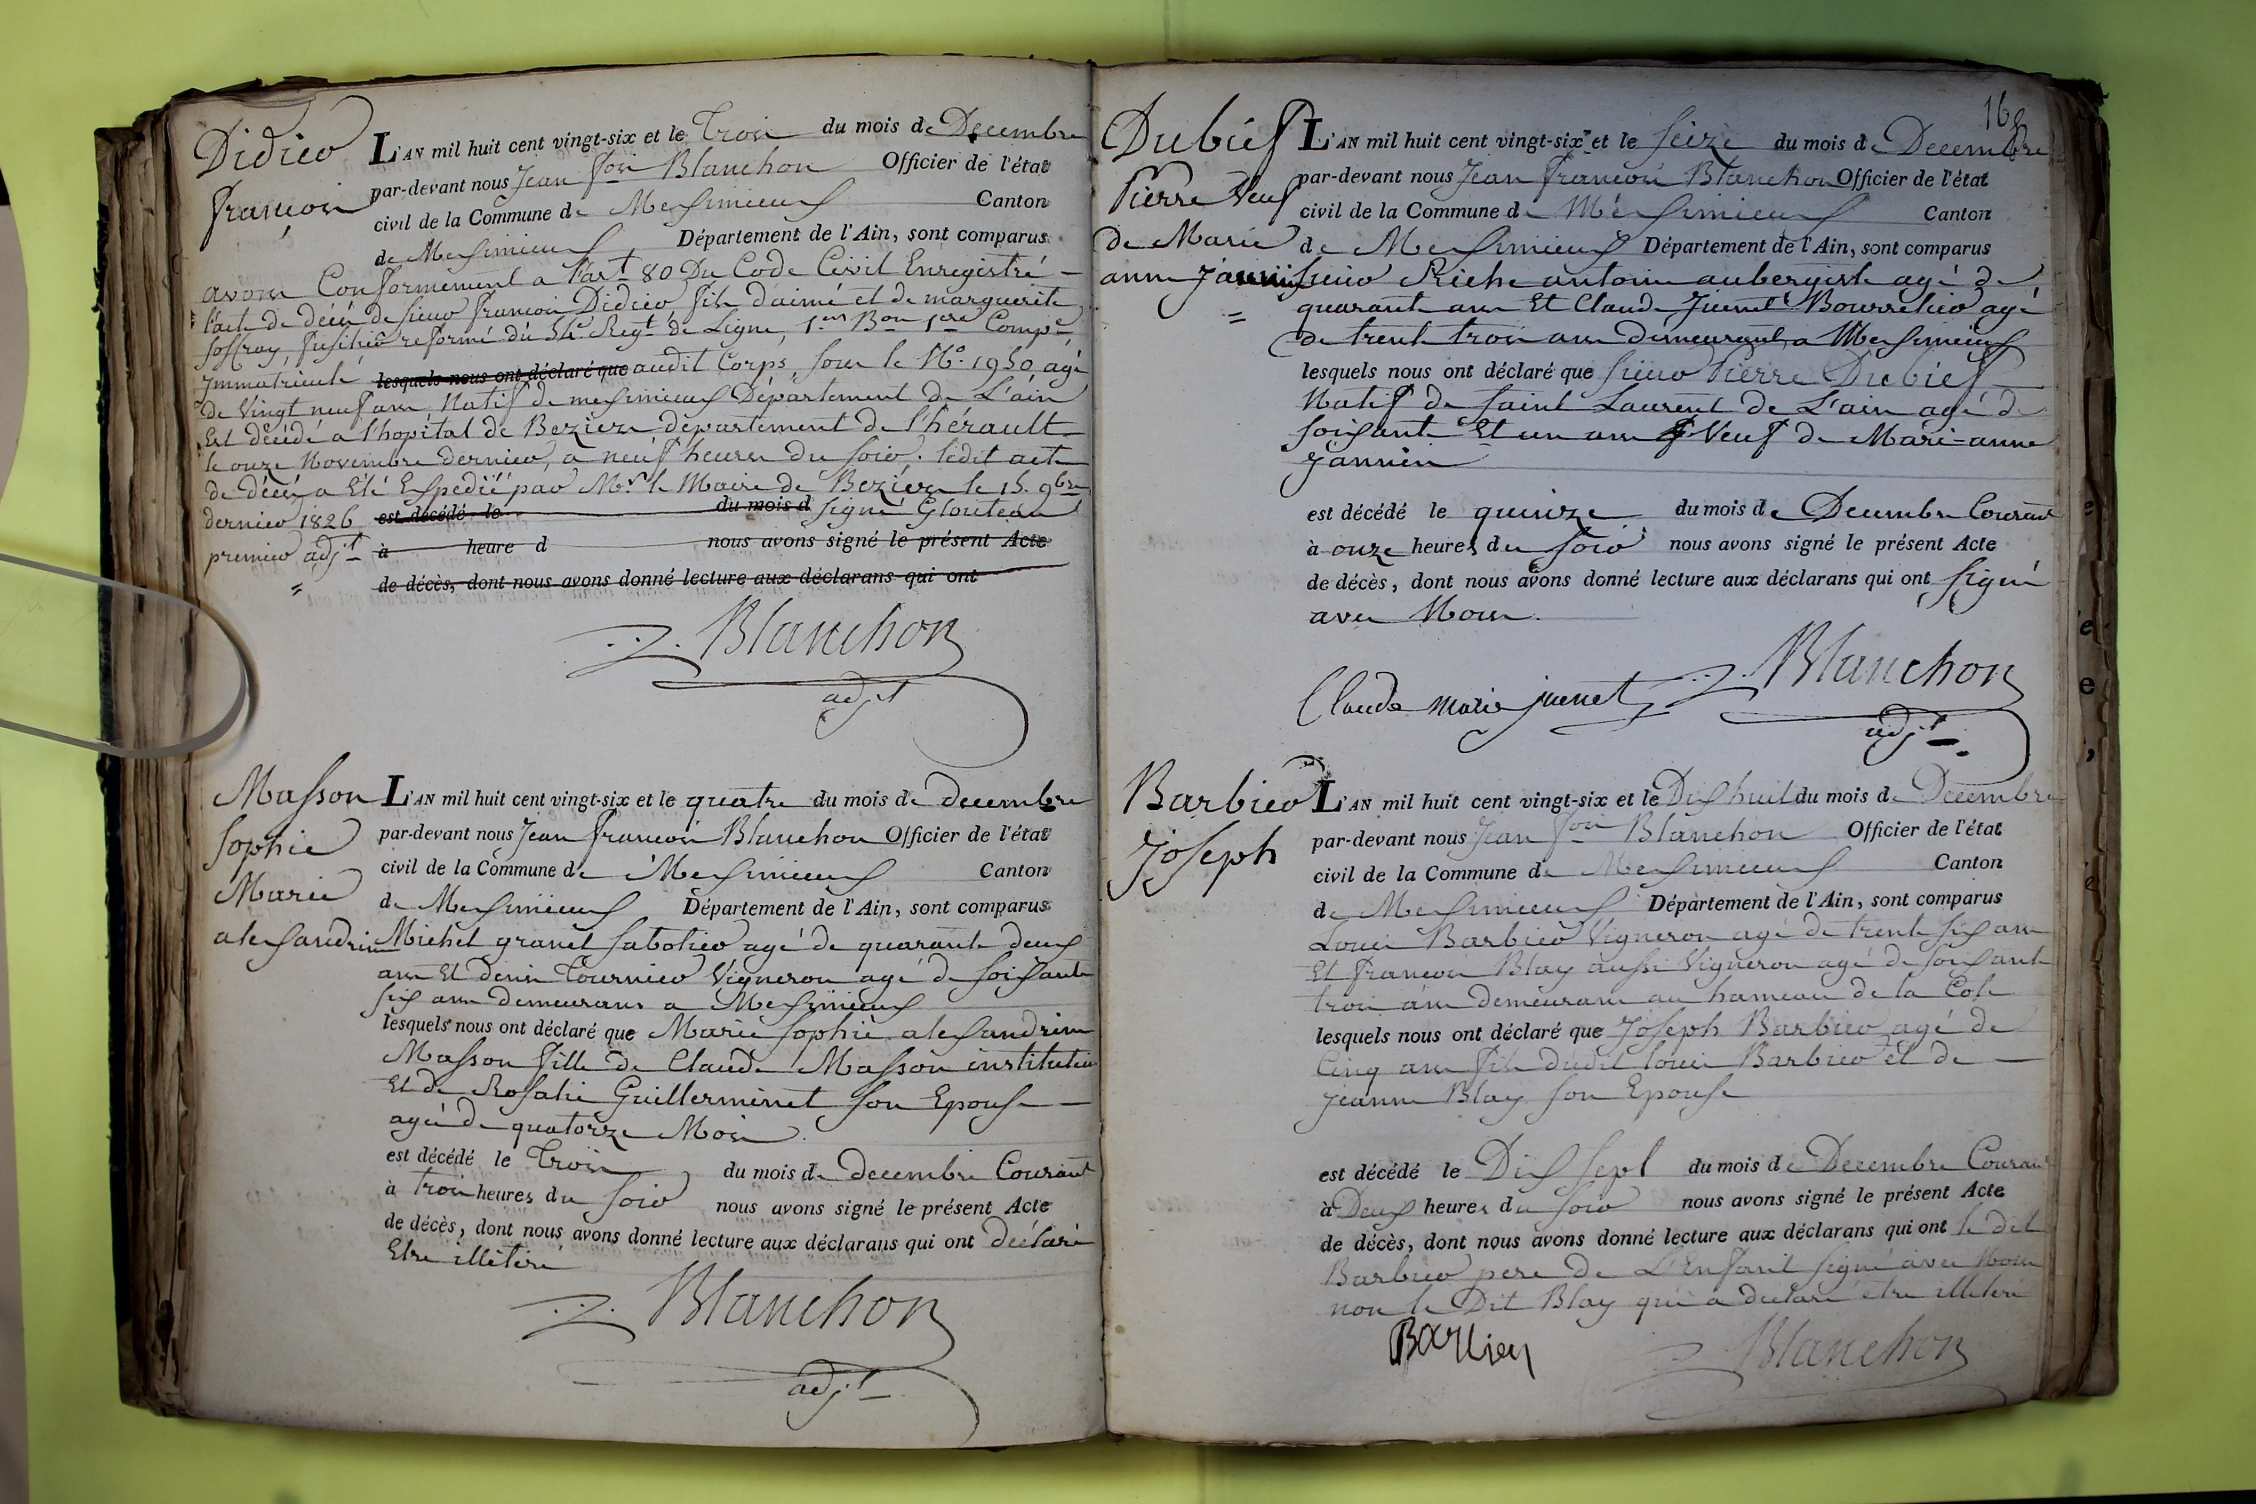 Didier
françois
L'AN mil huit cent vingt-six et le Trois du mois de Decembre
par-devant nous Jean fois Blanchon Officier de l'état
civil de la Commune de Meximieux Canton
de Meximieux Département de l'Ain, sont comparus
avons Conformement a l'art 80 Du Code Civil Enregistré
l'acte de décès de sieur françois Didier fils d'aimé et de marguerite
Joffray, fusilier reformé du Regt de Ligne, 1er Bon 1ere Compe
Immatriculé lesquels nous ont déclaré que audit Corps, sous le No 1950 agé
de Vingt neuf ans Natif de meximieux Département de L'ain
Est décédé a l'hopital de Beziers département de l'hérault
le onze Novembre dernier, a neuf heures du soir. ledit acte
de décès a Eté Expedié par Mr le Maire de Beziers le 15. 9bre
dernier 1826 est décédé le du mois d signé
premier adjt à heure d nous avons signé le présent Acte
de décès, dont nous avons donné lecture aux déclarans qui ont
Blanchon
adjt
Masson
Sophie
Marie
alexandrine
L'AN mil huit cent vingt-six et le quatre du mois de decembre
par-devant nous Jean françois Blanchon Officier de l'état
civil de la Commune de Meximieux Canton
de Meximieux Département de l'Ain, sont comparus
Michel granet sabotier agé de quarante deux
ans Et denis Tournier Vigneron agé de soixante
six ans demeurans a Meximieux
lesquels nous ont déclaré que Marie sophie alexandrine
Masson fille de Claude Masson instituteur
Et de Rosalie Guillerminet son Epouse
agée de quatorze Mois
est décédé le trois du mois de decembre Courant
à trois heures du soir nous avons signé le présent Acte
de décès, dont nous avons donné lecture aux déclarans qui ont déclaré
Etre illétéré
Blanchon
adjt
168
Dubief
Pierre Veuf
de Marie
anne Jannin
L'AN mil huit cent vingt-six et le seize du mois de Decembre
par-devant nous Jean françois Blanchon Officier de l'état
civil de la Commune de Meximieux Canton
de Meximieux Département de l'Ain, sont comparus
sieur Riche antoine aubergiste agé de
quarante ans Et Claude Juenet Bourrelier agé
de trente trois ans demeurant a Meximieux
lesquels nous ont déclaré que sieur Pierre Dubief
Natif de saint Laurent de L'ain agé de
soixante Et un ans Veuf de Marie-anne
Jannin
est décédé le quinze du mois de Decembre Courant
à onze heures du soir nous avons signé le présent Acte
de décès, dont nous avons donné lecture aux déclarans qui ont signé
avec Nous.
Claude Marie juenet Blanchon
adjt
Barbier
Joseph
L'AN mil huit cent vingt-six et le Dix huit du mois de Decembre
par-devant nous Jean fois Blanchon Officier de l'état
civil de la Commune de Meximieux Canton
de Meximieux Département de l'Ain, sont comparus
Louis Barbier Vigneron agé de trente six ans
Et françois Blay aussi Vigneron agé de soixante
trois ans demeurans au hameau de la Cote
lesquels nous ont déclaré que Joseph Barbier agé de
Cinq ans fils dudit louis Barbier et de
jeanne Blay son Epouse
est décédé le Dix sept du mois de Decembre Courant
à Deux heures du soir nous avons signé le présent Acte
de décès, dont nous avons donné lecture aux déclarans qui ont le dit
Barbier pere de L'Enfant signé avec Nous
non le Dit Blay qui a déclaré etre illétéré
Barbier
Blanchon